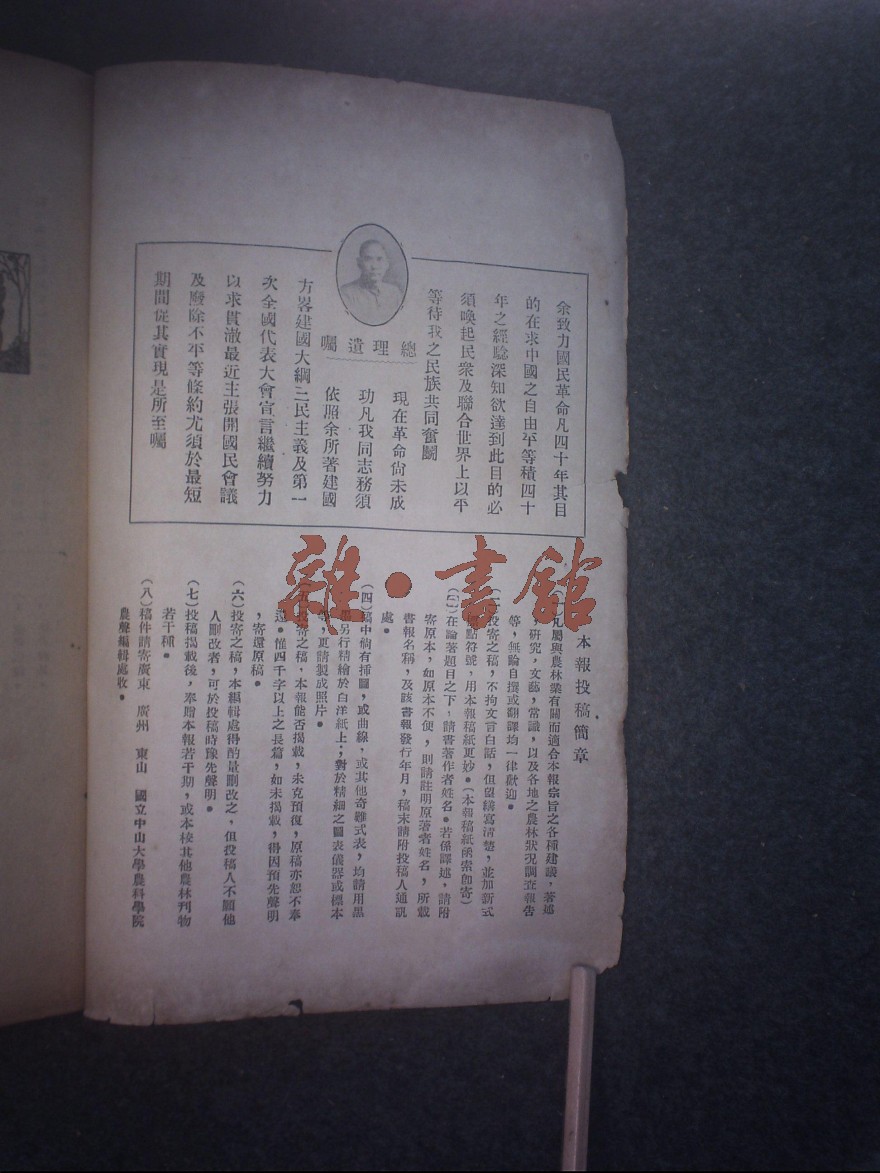 余致力國民革命凡四十年其目
的在求中國之自由平等積四十
年之經驗深知欲達到此目的必
須喚起民衆及聯合世界上以平
等待我之民族共同奮鬭
總理遺囑
現在革命尙未成
功凡我同志務須
依照余所著建國
方畧建國大綱三民主義及第一
次全國代表大會宣言繼續努力
以求貫澈最近主張開國民會議
及廢除不平等條約尤須於最短
期間促其實現是所至囑
雜·書館
本報投稿簡章
凡屬與農林業有關而適合本報宗旨之各種建議,著述
,研究,文藝,常識,以及各地之農林狀况調查報告
等,無論自撰或翻譯均一律歡迎。
投寄之稿,不拘文言白話,但望繕寫清楚,並加新式
點符號,用本報稿紙更妙。(本報稿紙函索卽寄)
在論著題目之下,請書著作者姓名。若係譯述,請附
寄原本,如原本不便,則請註明原著者姓名,所載
書報名稱,及該書報發行年月,稿末請附投稿人通訊
處。
(四)稿中倘有插圖,或曲線,或其他奇難式表,均請用黑
另行精繪於白洋紙上;對於精細之圖表儀器或標本
,更請製成照片。
投寄之稿,本報能否揭載,未克預復,原稿亦恕不奉
還。惟四千字以上之長篇,如未揭載,得因預先聲明
,寄還原稿。
(六)投寄之稿,本編輯處得酌量刪改之,但投稿人不願他
人刪改者,可於投稿時豫先聲明。
(七)投稿揭載後,奉贈本報若干期,或本校其他農林刊物
若干種。
(八)稿件請寄廣東 廣州 東山 國立中山大學農科學院
農聲編輯處收。